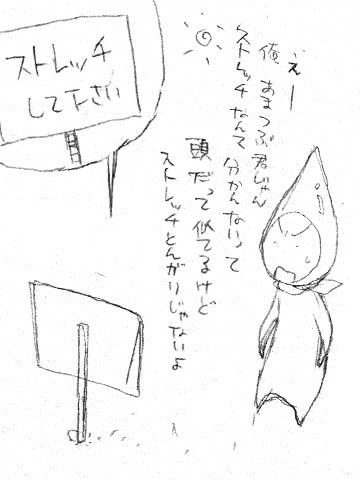 ストレッチ
して下さい
えー
俺 あまつぶ君じゃん
ストレッチなんて 分かんないって
頭だって 似てるけど
ストレッチとんがりじゃないよ